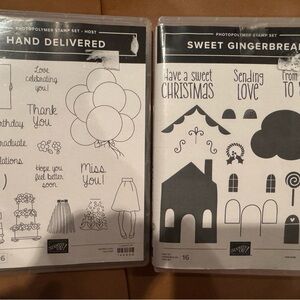 PHOTOPOLYMER STAMP SET - HOST
HAND DELIVERED
Love
celebrating
you!
Thank
You
irthday
raduate
lations
Hope you
feel better
soon
Miss
You!
STAMPIN' UP!
6
PHOTOPOLYMER STAMP SET
SWEET GINGERBREA
Have a sweet
CHRISTMAS
Sending
LOVE
From
TO Y
16
STAMPIN' UP!